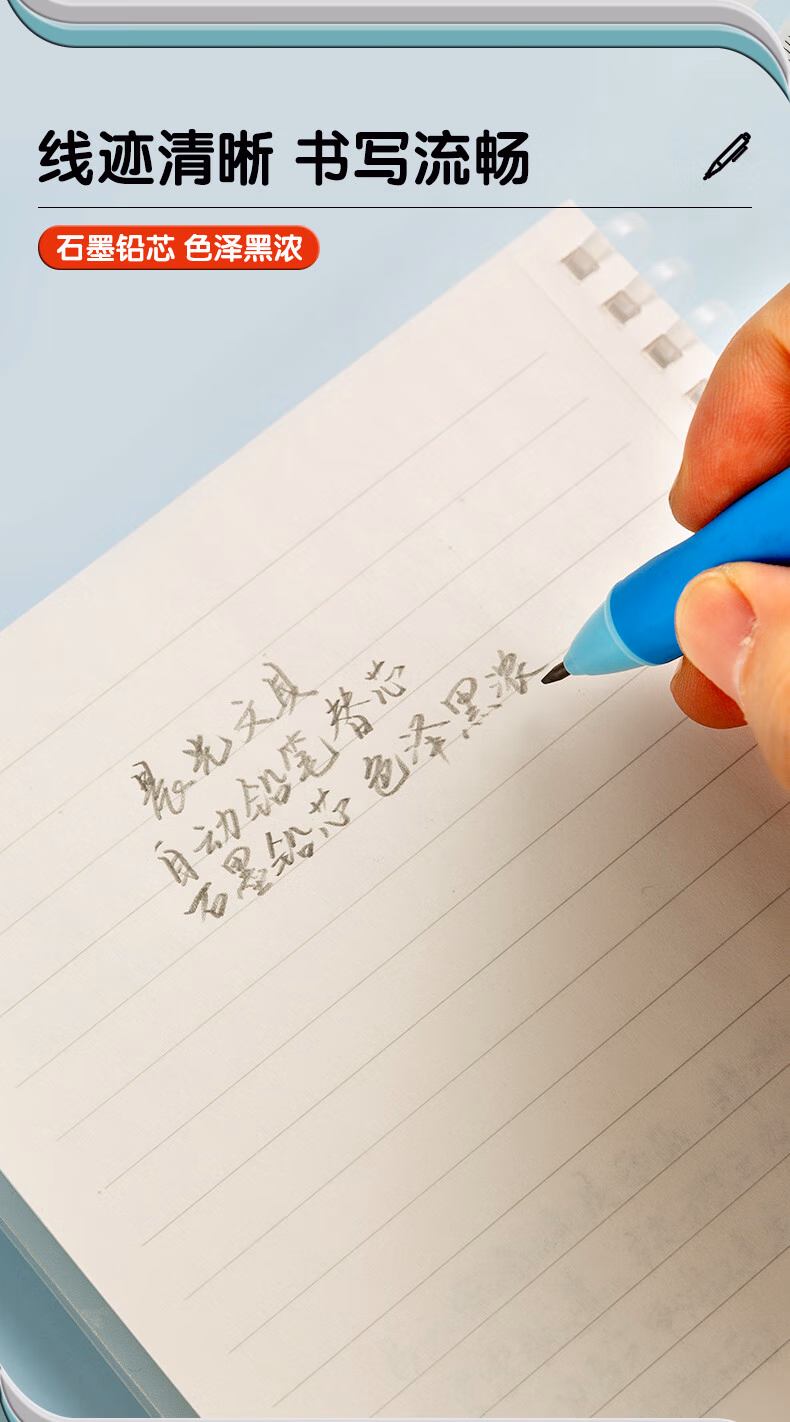 线迹清晰 书写流畅
石墨铅芯 色泽黑浓
晨光文具
自动铅笔替芯
石墨铅芯 色泽黑浓